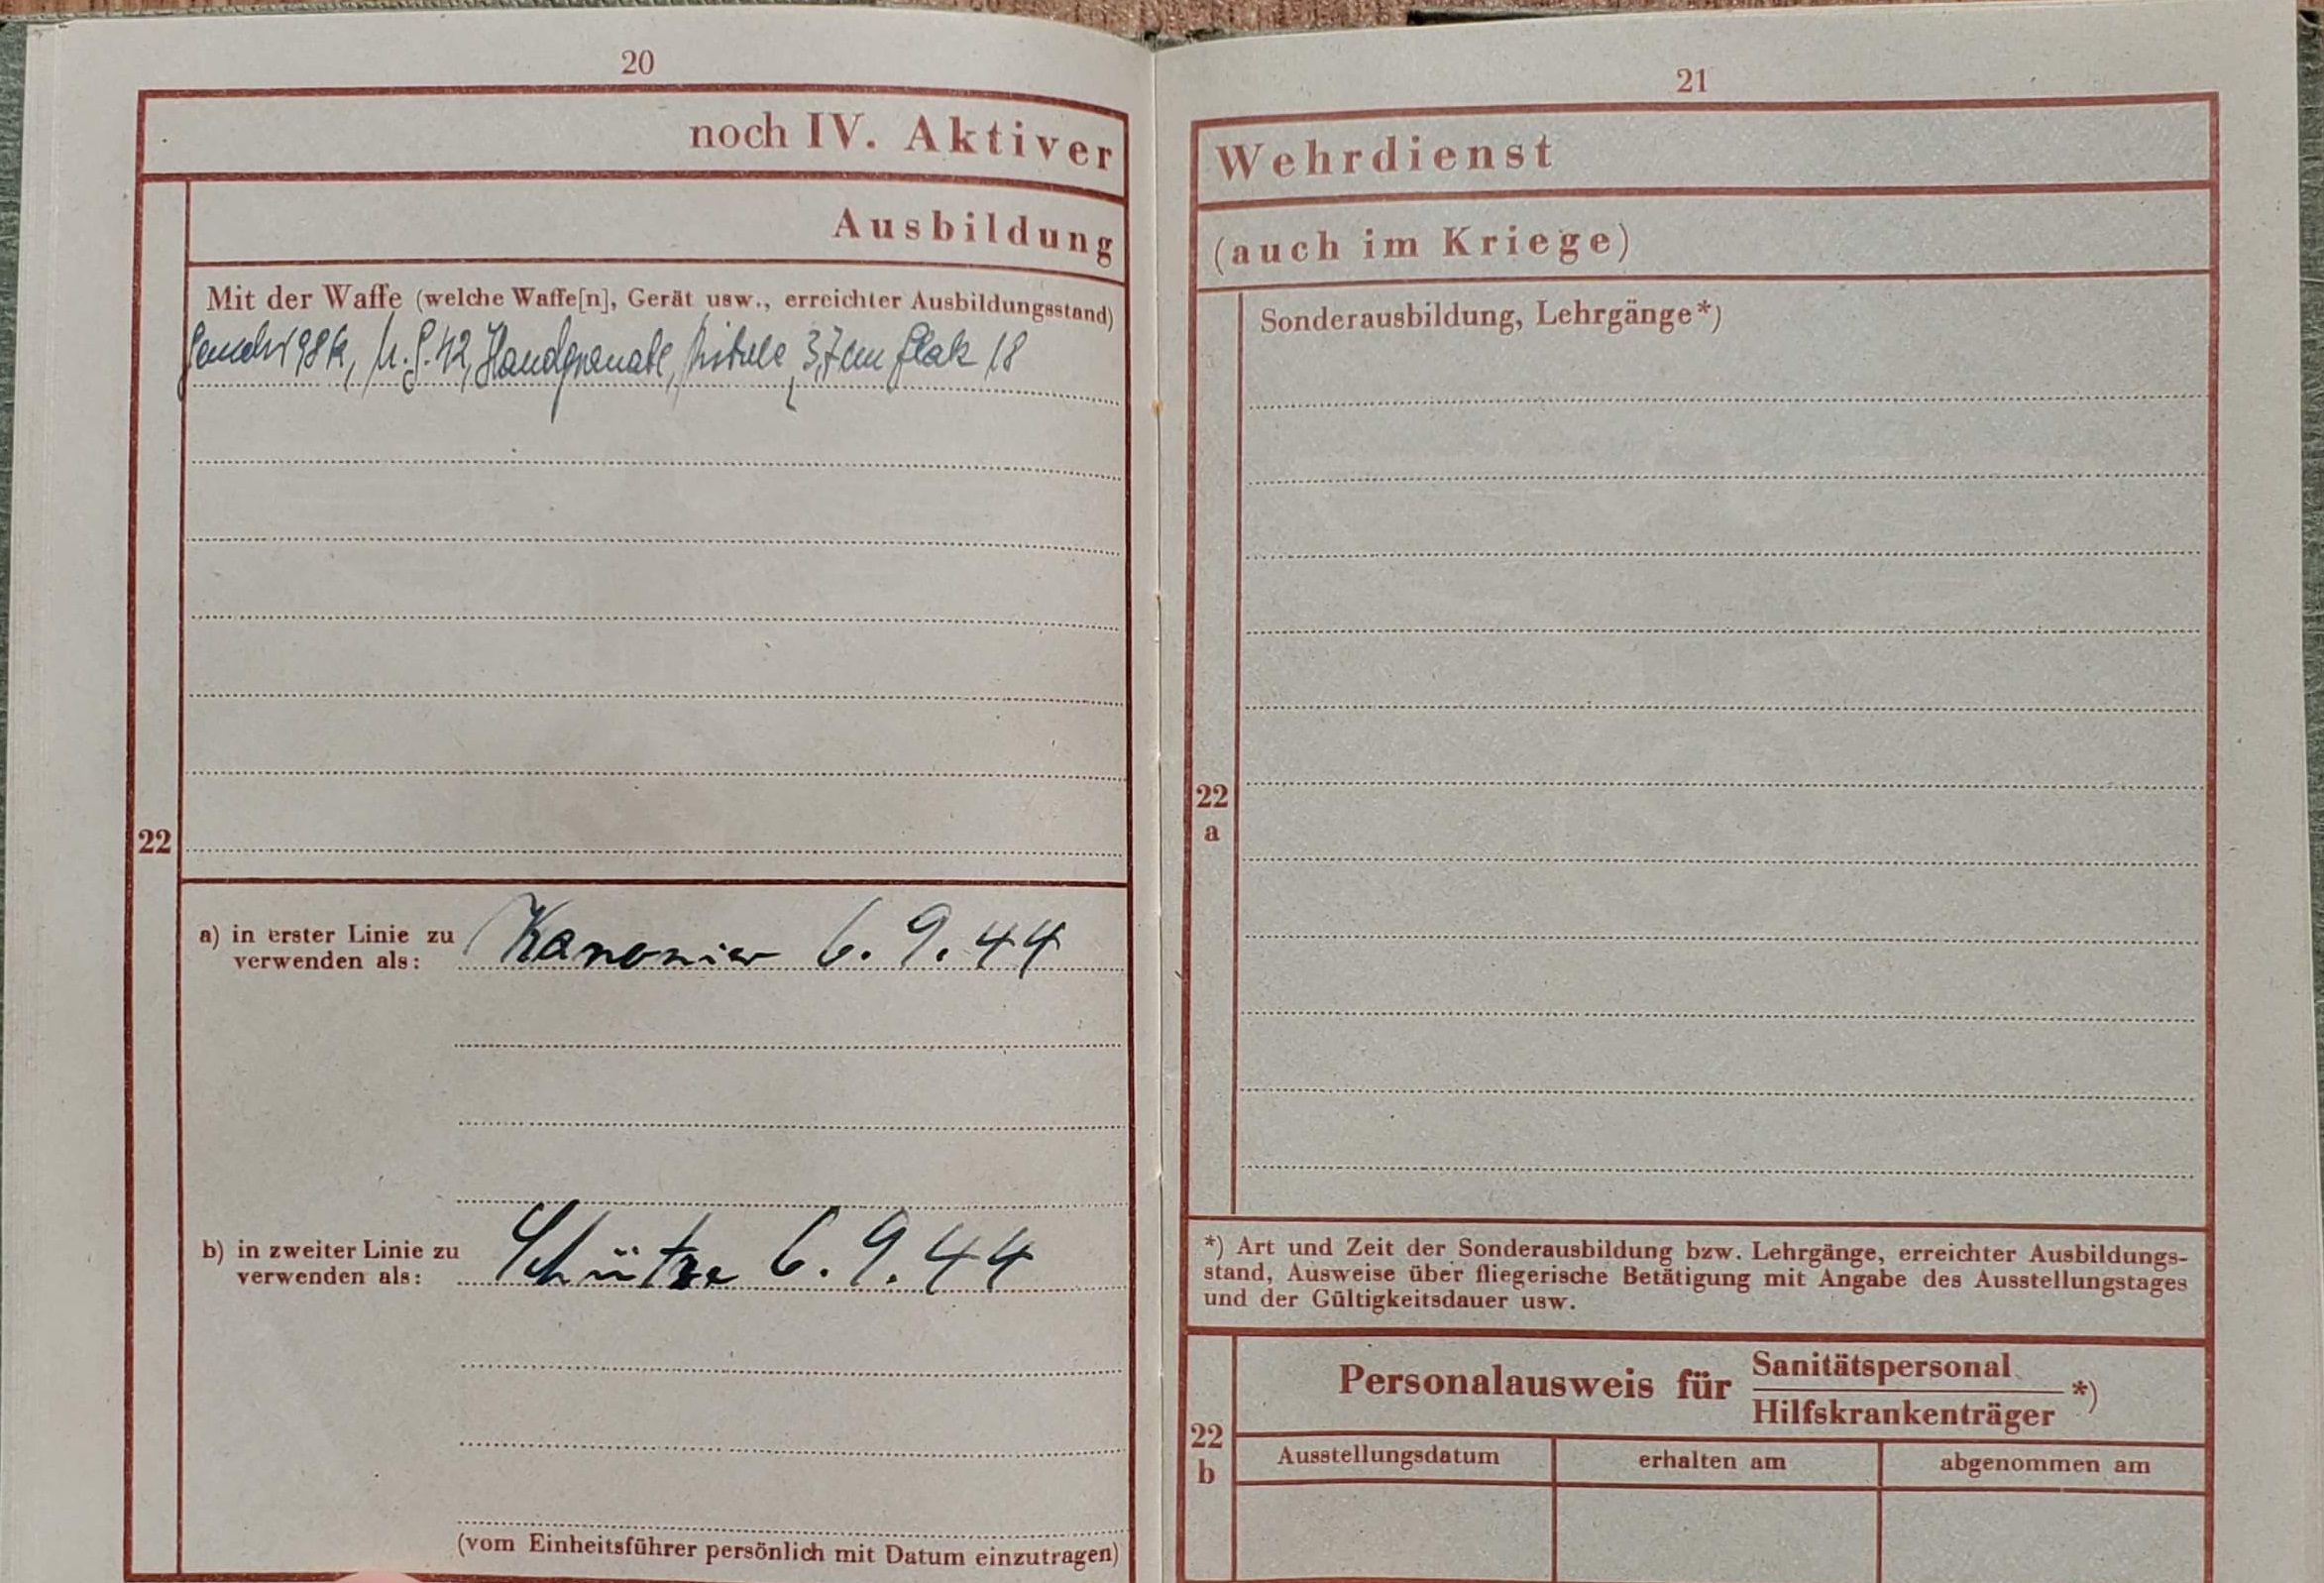 20
noch IV. Aktiver
Ausbildung
Mit der Waffe (welche Waffe[n], Gerät usw., erreichter Ausbildungsstand)
Gewehr 98k, M.G. 42, Handgranate, Pistole, 3,7 cm Flak 18
22
a) in erster Linie zu
verwenden als:
Kanonier 6. 9. 44
b) in zweiter Linie zu
verwenden als:
Schütze 6. 9. 44
(vom Einheitsführer persönlich mit Datum einzutragen)
21
Wehrdienst
(auch im Kriege)
Sonderausbildung, Lehrgänge*)
22
a
*) Art und Zeit der Sonderausbildung bzw. Lehrgänge, erreichter Ausbildungs-
stand, Ausweise über fliegerische Betätigung mit Angabe des Ausstellungstages
und der Gültigkeitsdauer usw.
22
b
Personalausweis für Sanitätspersonal
Hilfskrankenträger *)
Ausstellungsdatum
erhalten am
abgenommen am